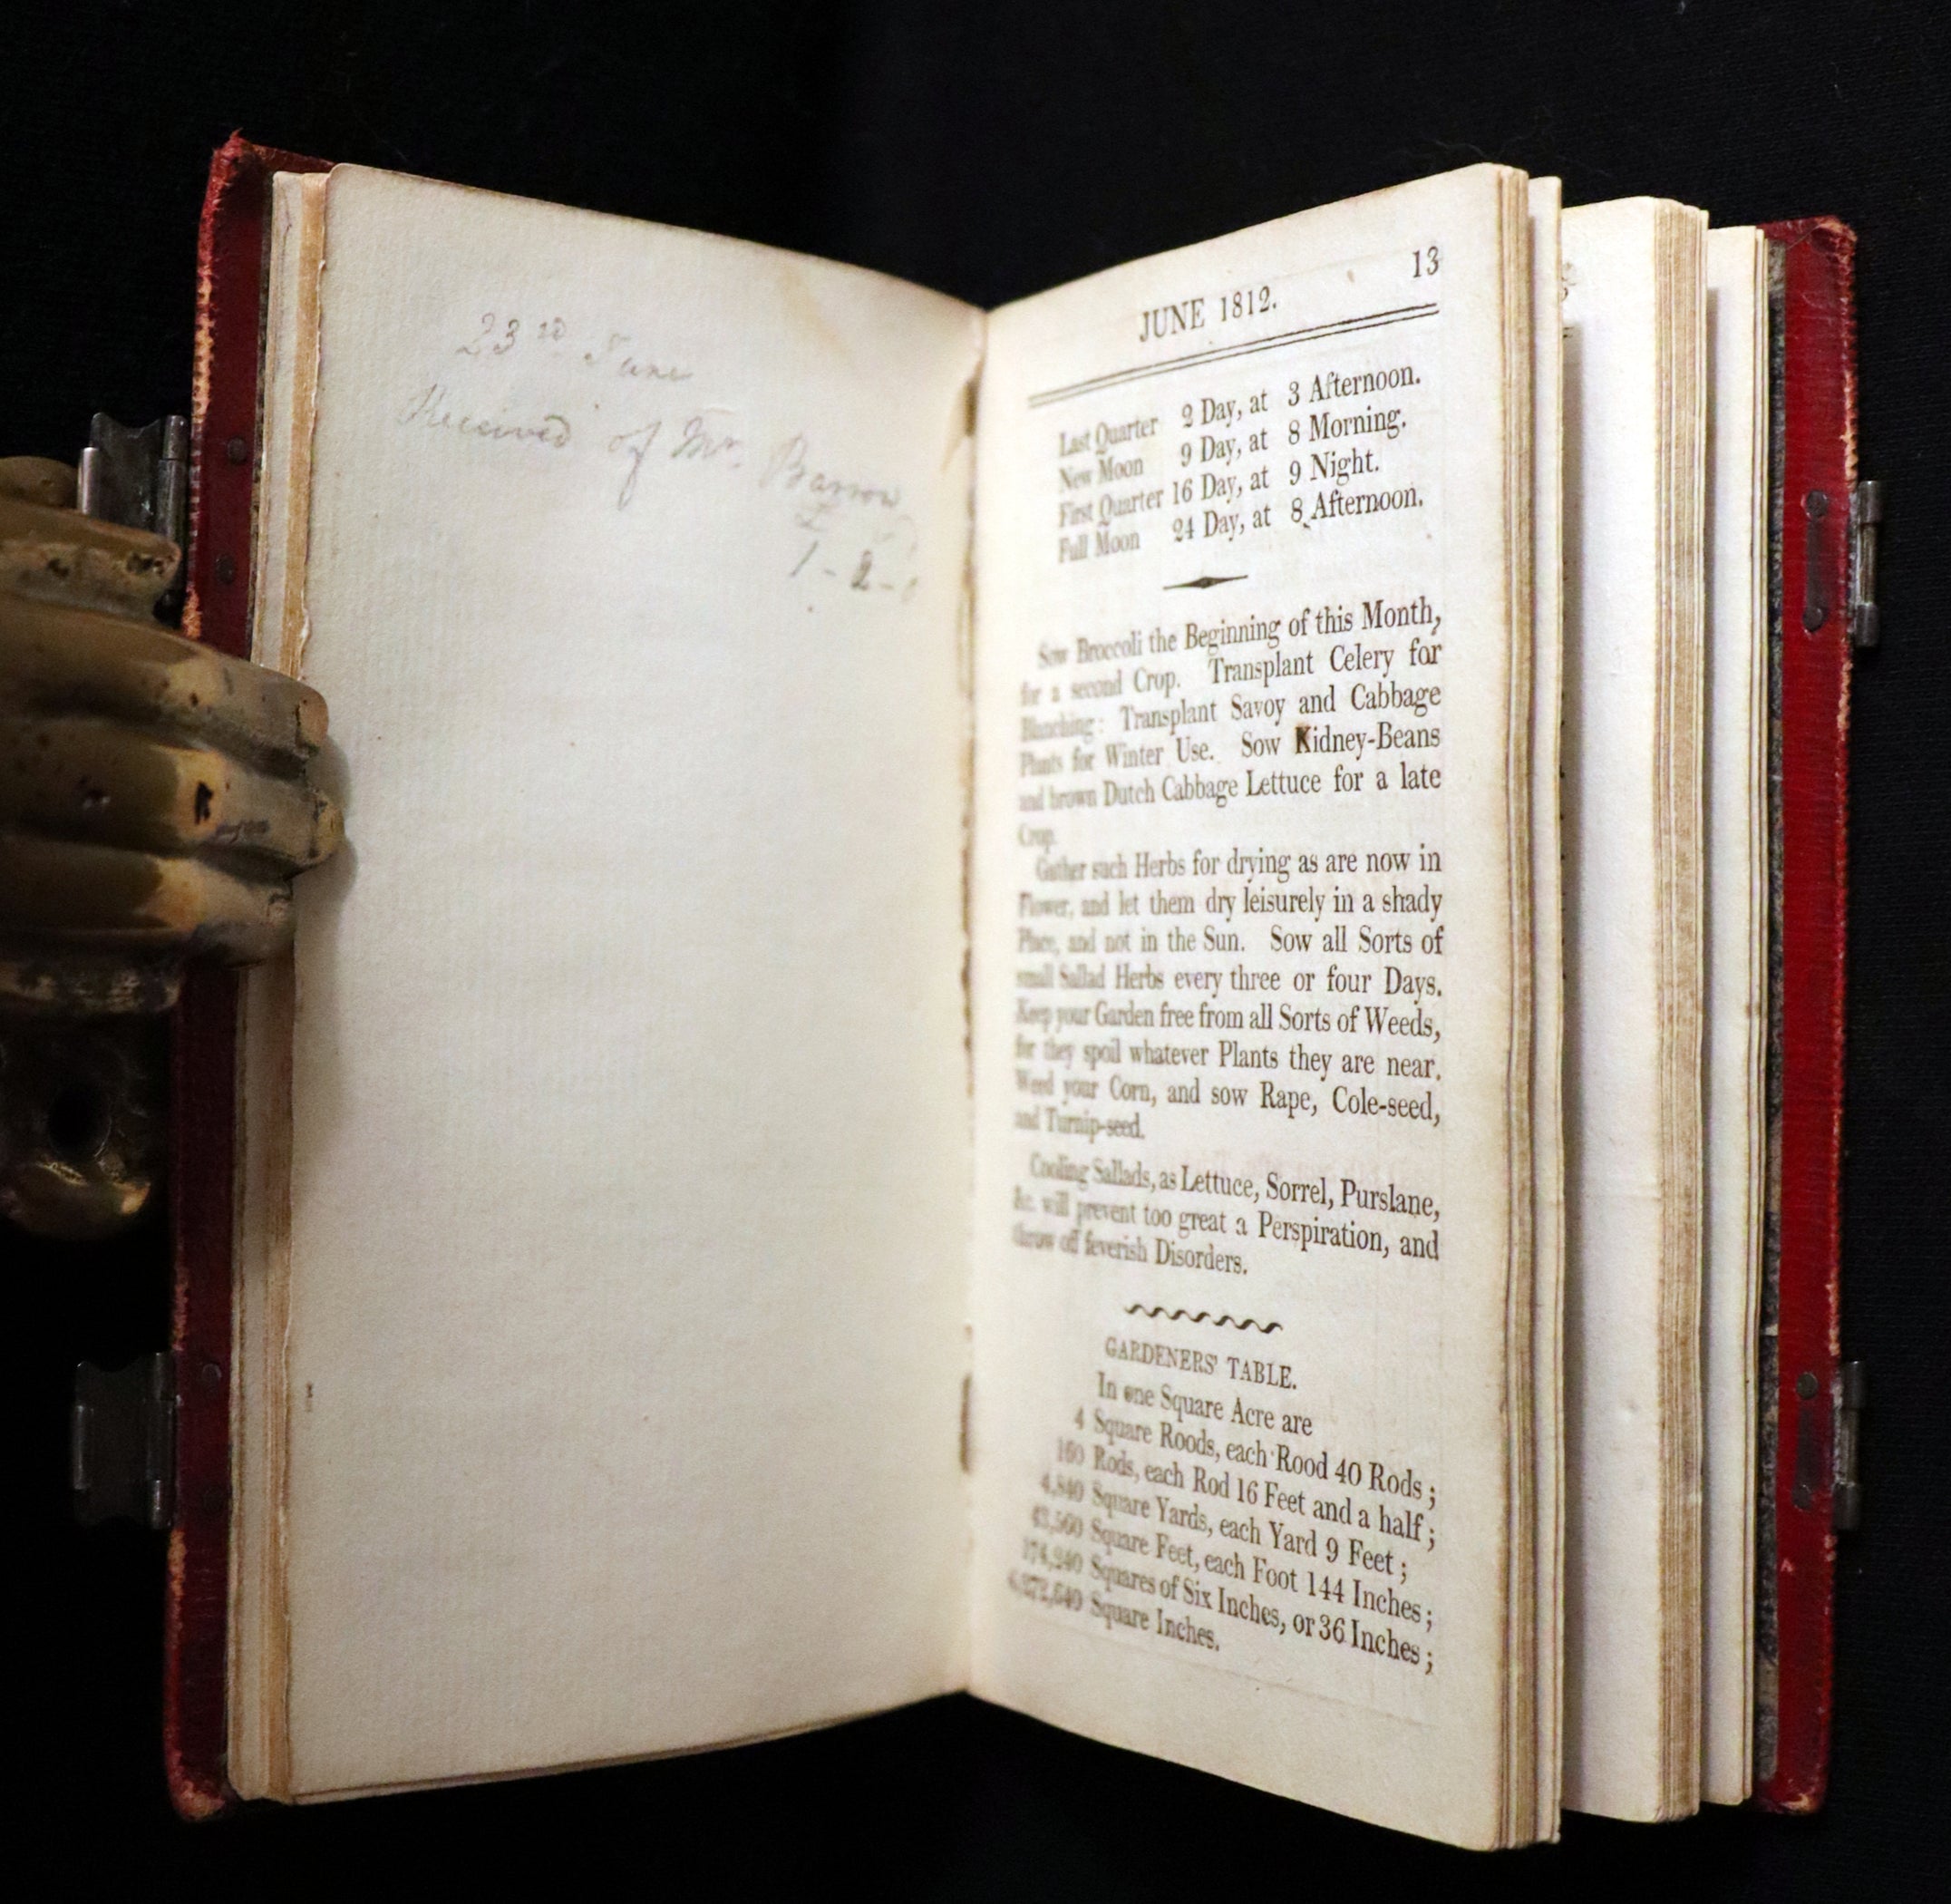 23rd June
Received of Mr. Barrow
£
1-2-
JUNE 1812. 13
Last Quarter 2 Day, at 3 Afternoon.
New Moon 9 Day, at 8 Morning.
First Quarter 16 Day, at 9 Night.
Full Moon 24 Day, at 8 Afternoon.
Sow Broccoli the Beginning of this Month,
for a second Crop. Transplant Celery for
Blanching: Transplant Savoy and Cabbage
Plants for Winter Use. Sow Kidney-Beans
and brown Dutch Cabbage Lettuce for a late
Crop.
Gather such Herbs for drying as are now in
Flower, and let them dry leisurely in a shady
Place, and not in the Sun. Sow all Sorts of
small Sallad Herbs every three or four Days.
Keep your Garden free from all Sorts of Weeds,
for they spoil whatever Plants they are near.
Weed your Corn, and sow Rape, Cole-seed,
and Turnip-seed.
Cooling Sallads, as Lettuce, Sorrel, Purslane,
&c. will prevent too great a Perspiration, and
throw off feverish Disorders.
GARDENERS' TABLE.
In one Square Acre are
4 Square Roods, each Rood 40 Rods;
160 Rods, each Rod 16 Feet and a half;
4,840 Square Yards, each Yard 9 Feet;
43,560 Square Feet, each Foot 144 Inches;
174,240 Squares of Six Inches, or 36 Inches;
6,272,640 Square Inches.